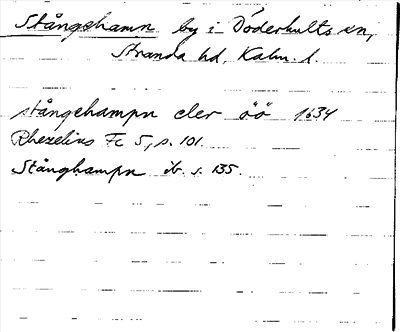 Stångehamn by i Döderhults sn,
Stranda hd, Kalm. l.
stångehampn eler öö 1634
Rhezelius Fc 5, s. 101.
Stånghampn ib. s. 135.